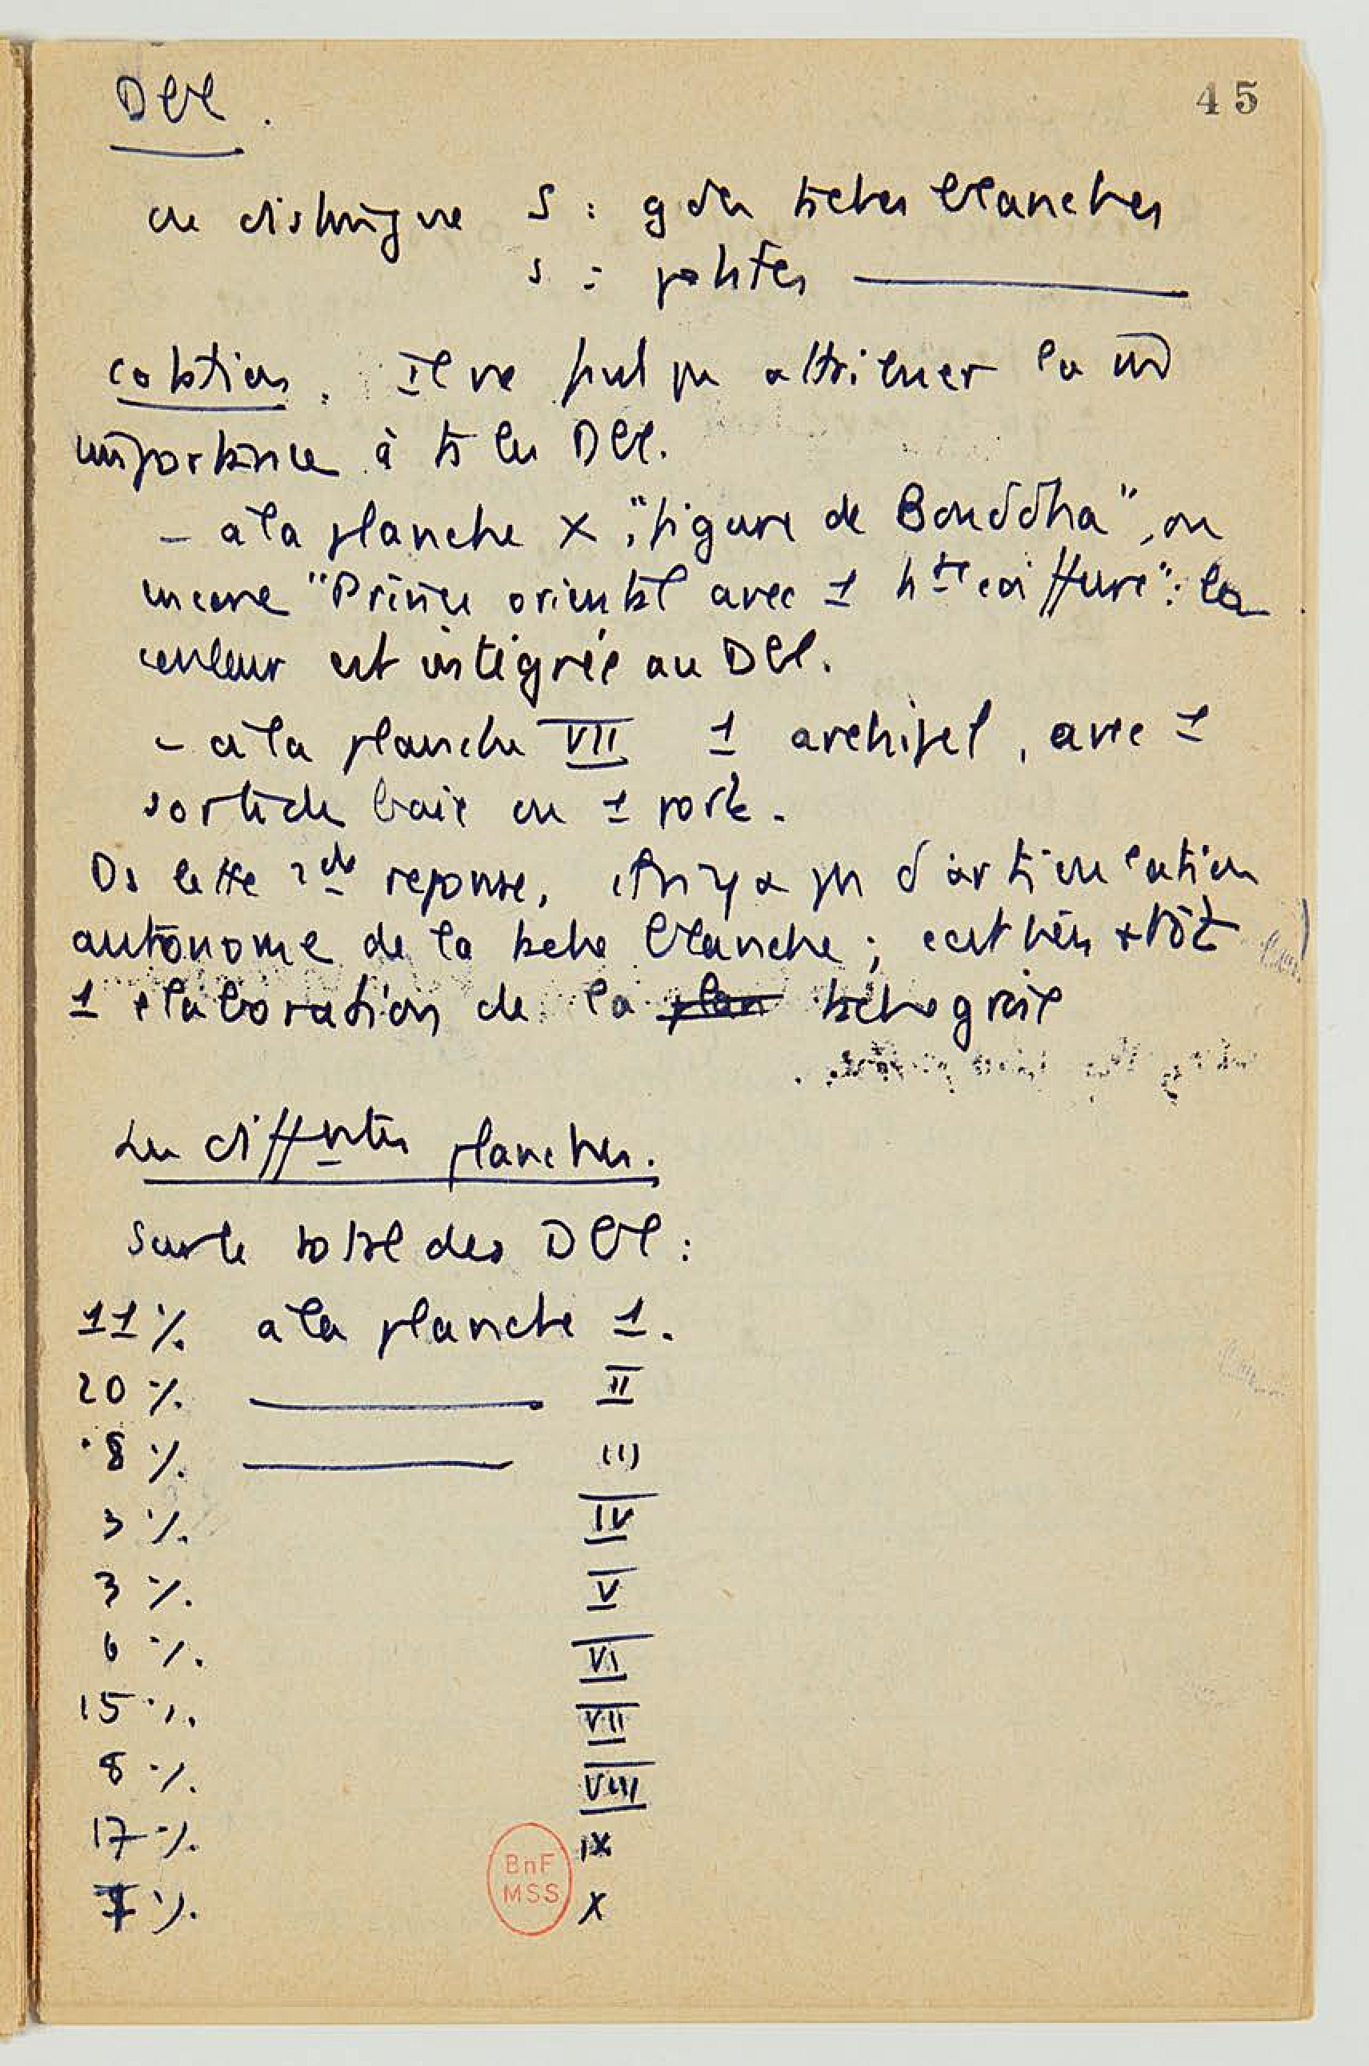 45
Dbl.
on distingue S : gdes taches blanches
s : petites ———
cotation. Il ne faut pas attribuer la m̄
importance à ts les Dbl.
– à la planche X, "figure de Bouddha", ou
encore "Prince oriental avec 1 hte coiffure": la
couleur est intégrée au Dbl.
– à la planche VII 1 archipel, avec 1
sorte de baie ou 1 port.
Ds cette 2de réponse, il n'y a pas d'articulation
autonome de la tache blanche ; c'est bien +tôt
1 élaboration de la plan tache grise
Les diffntes planches.
Sur le total des Dbl :
11% à la planche 1.
20% ——— II
8% ——— III
3% IV
3% V
6% VI
15% VII
8% VIII
17% IX
% X
BnF
MSS